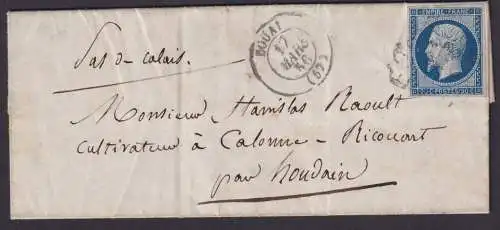 Pas de calais.
DOUAI
17
MARS
(57)
EMPIRE FRANC.
20 c. POSTES 20 c.
Monsieur Stanislas Raoult
Cultivateur à Calonne - Ricouart
par houdain